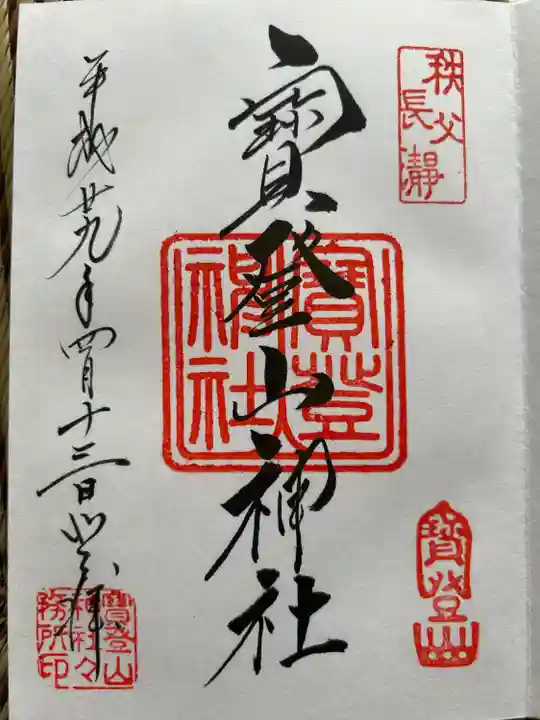 秩父
長瀞
寳登山神社
寳登
神社
寳登山
平成廿九年四月十三日
寳登山
神社々
務所印